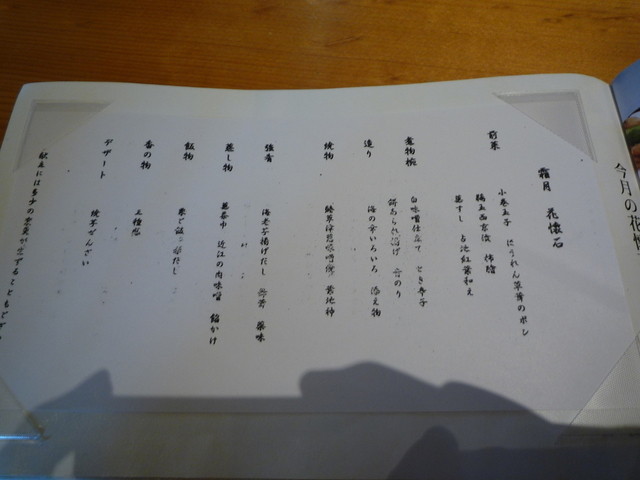 今月の花懐
霜月 花懐石
前菜
小巻玉子 ほうれん草茸のポン
鶏五西京焼 柿膾
蒸すし 占地紅葉和え
煮物椀
白味噌仕立て とき辛子
餅あられ揚げ 岩のり
造り
海の幸いろいろ 添え物
焼物
強肴
海老芋揚げだし 薬味
蒸し物
万寿巾 近江の肉味噌 餡かけ
飯物
栗ご飯
香の物
三種盛
デザート
焼芋ぜんざい
献立には多少の変更が生ずることもござ